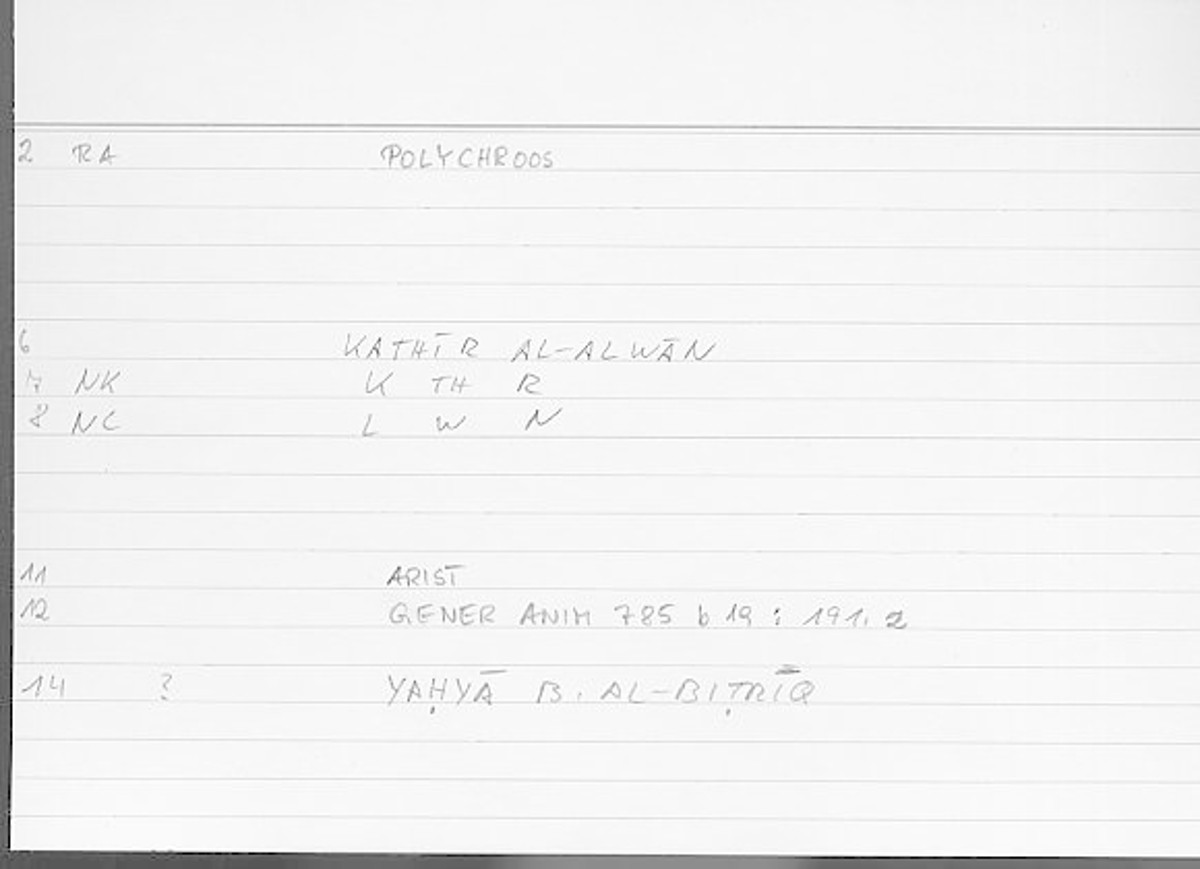 2 RA POLYCHROOS
6 KATHĪR AL-ALWĀN
7 NK K TH R
8 NC L W N
11 ARIST
12 GENER ANIM 785 b 19 : 191. 2
14 ? YAḤYĀ B. AL-BIṬRĪQ